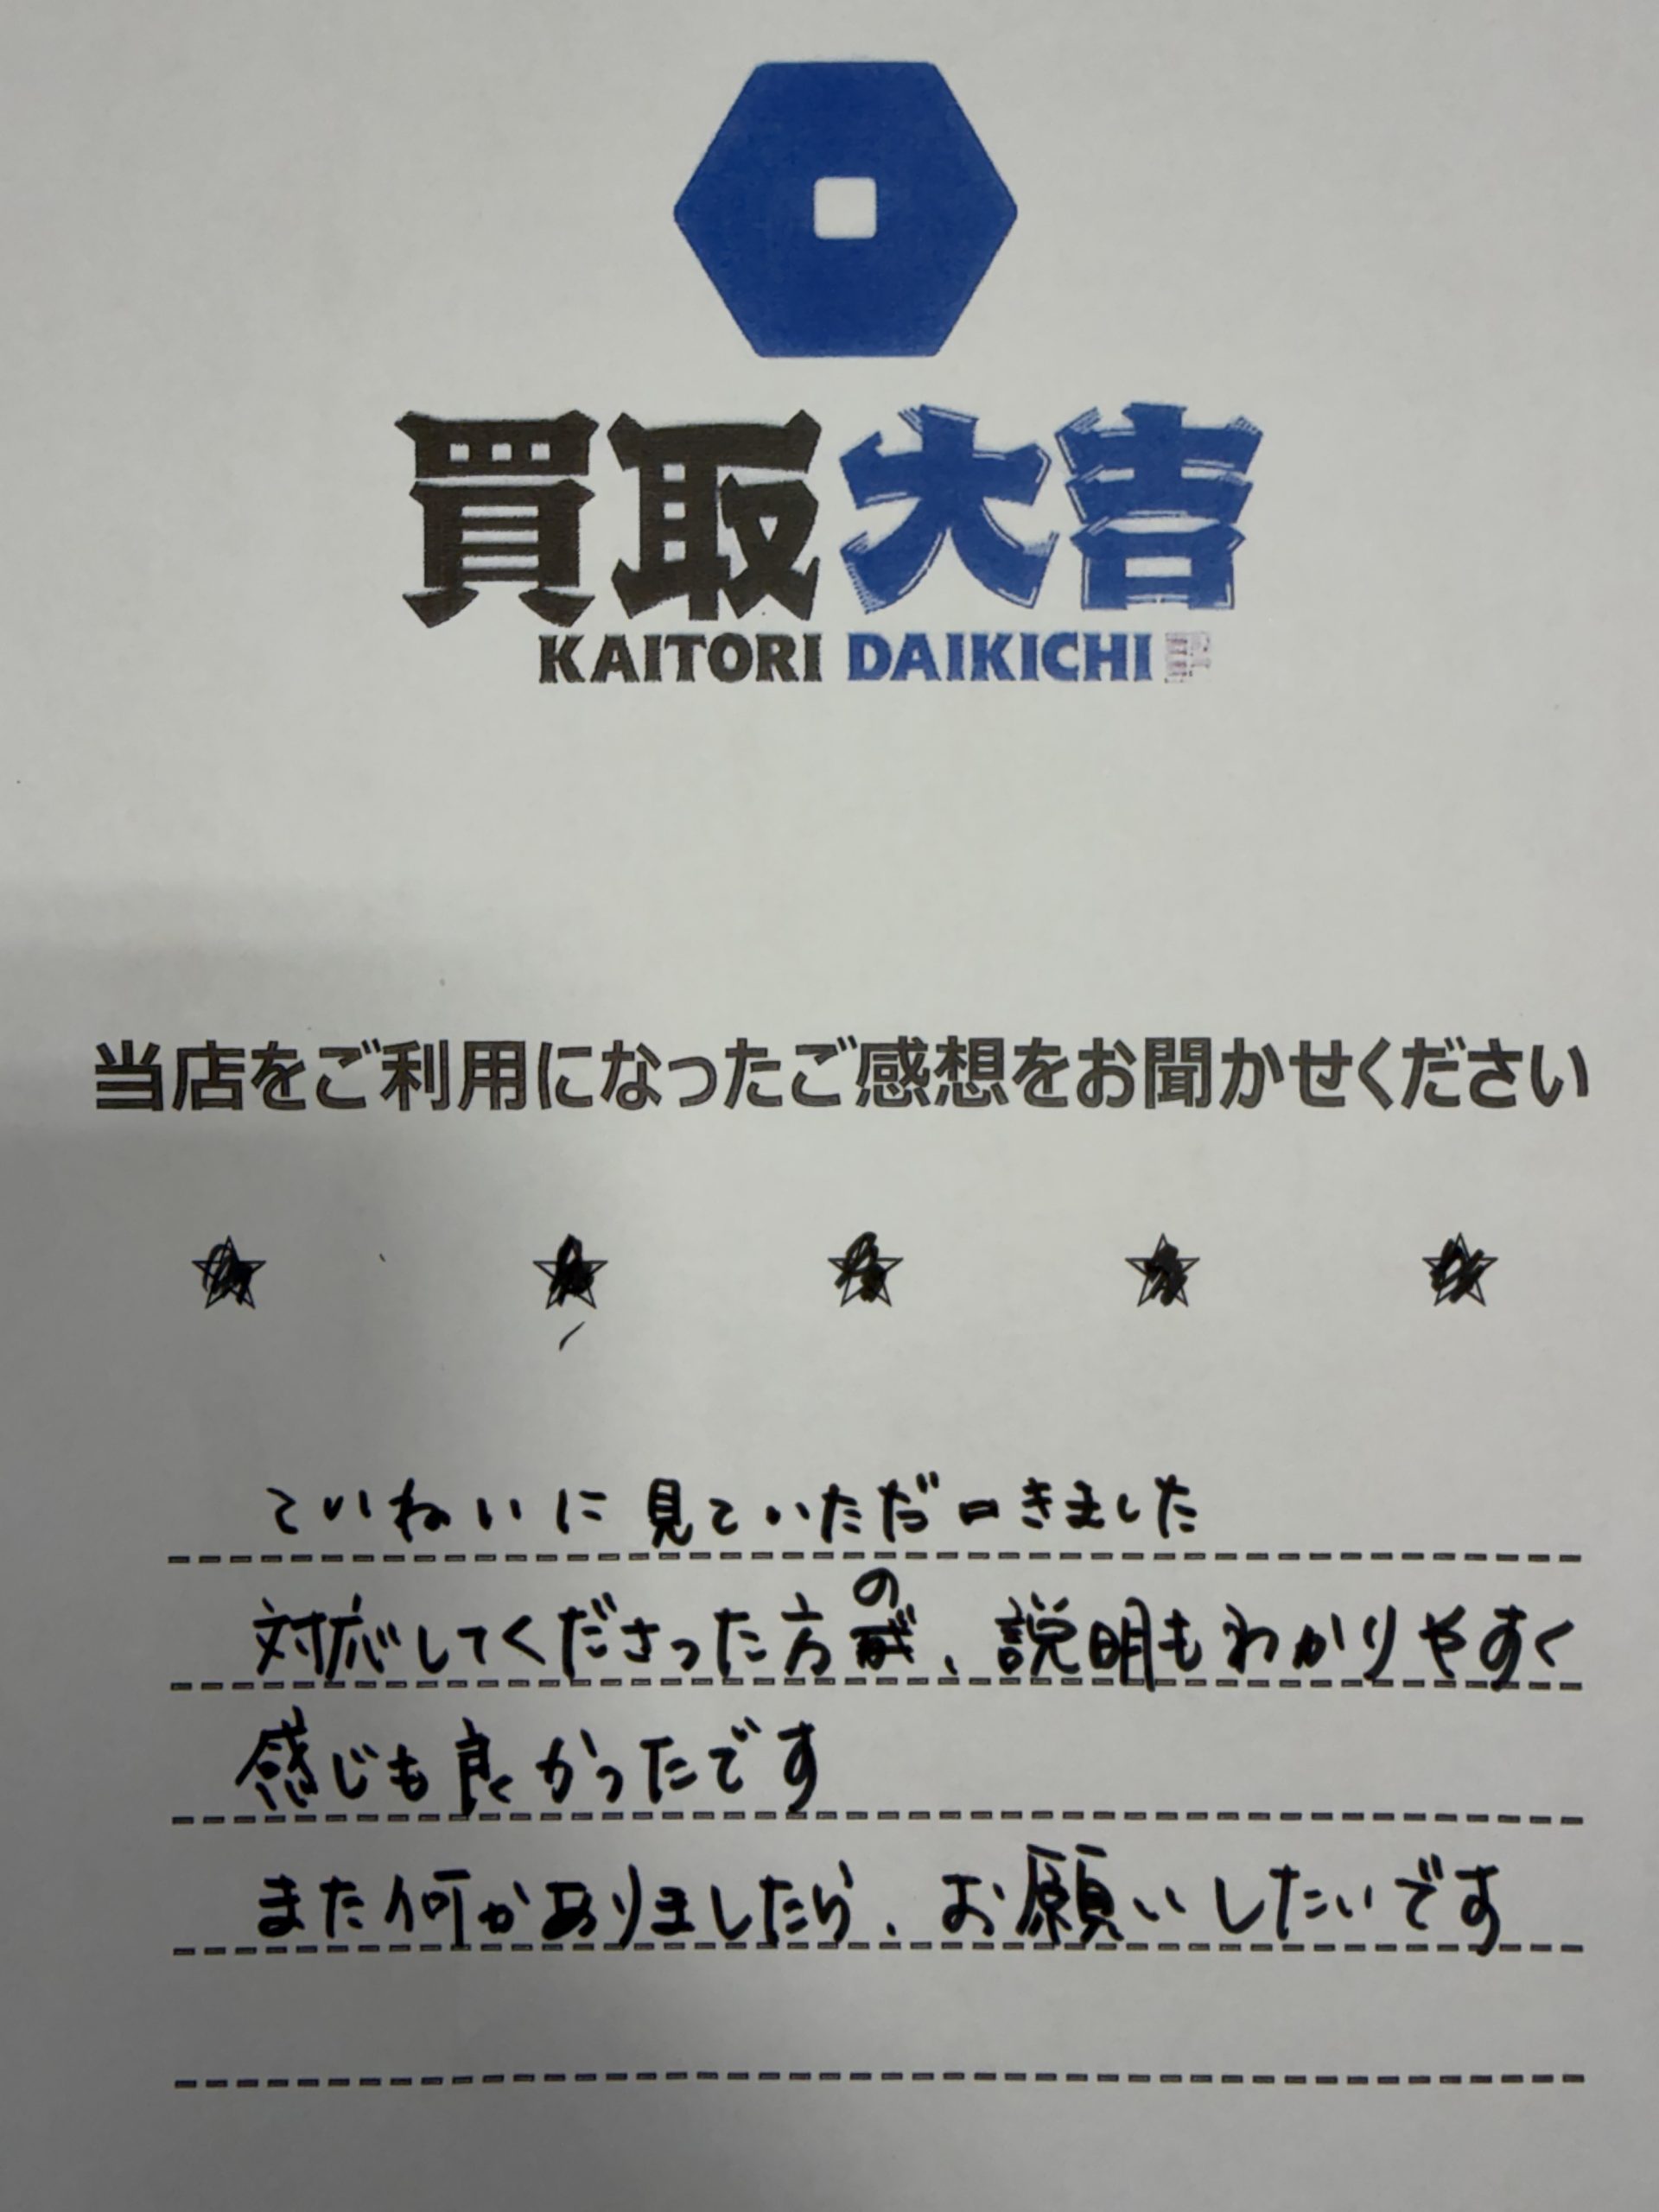 買取大吉
KAITORI DAIKICHI
当店をご利用になったご感想をお聞かせください
ていねいに見ていただきました
対応してくださった方の、説明もわかりやすく
感じも良かったです
また何かありましたら、お願いしたいです